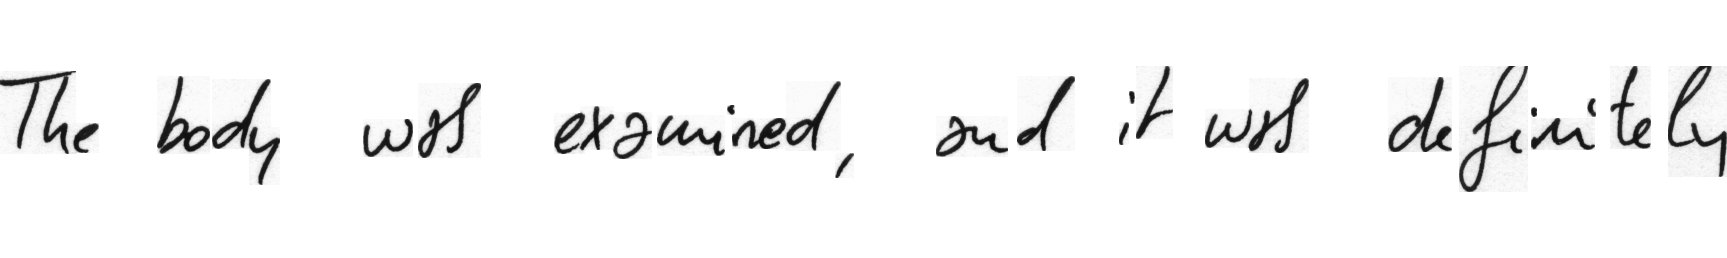 The body was examined, and it was definitely